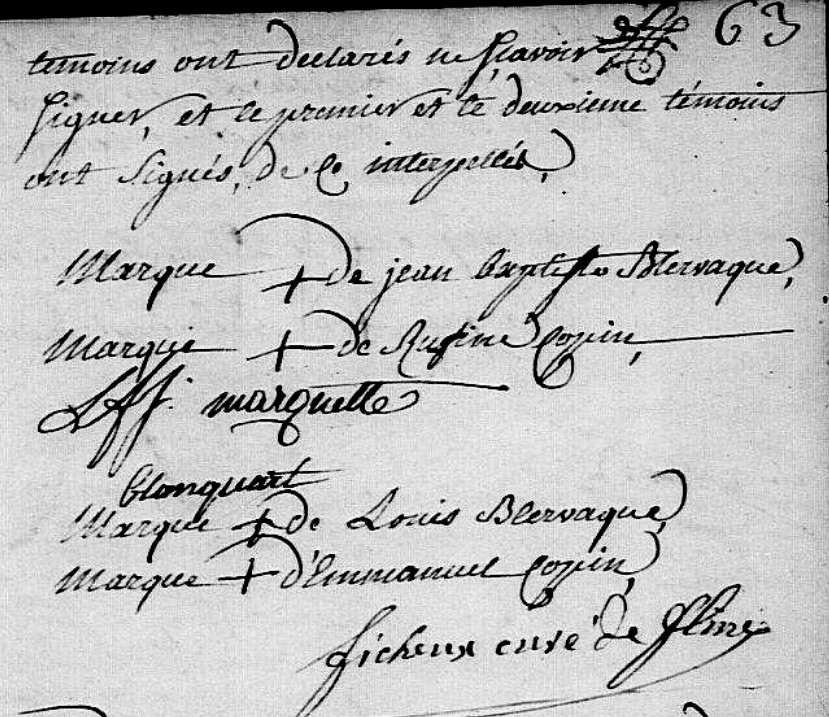 63
témoins ont declarés ne sçavoir
signer, et le premier et le deuxieme témoins
ont signés, de ce interpellés,
Marque + de jean baptiste Blervaque,
Marque + de Rufine Copin,
Lff. marquette
blonquart
Marque + de Louis Blervaque,
Marque + d'Emmanuel Copin,
ficheux curé de flines